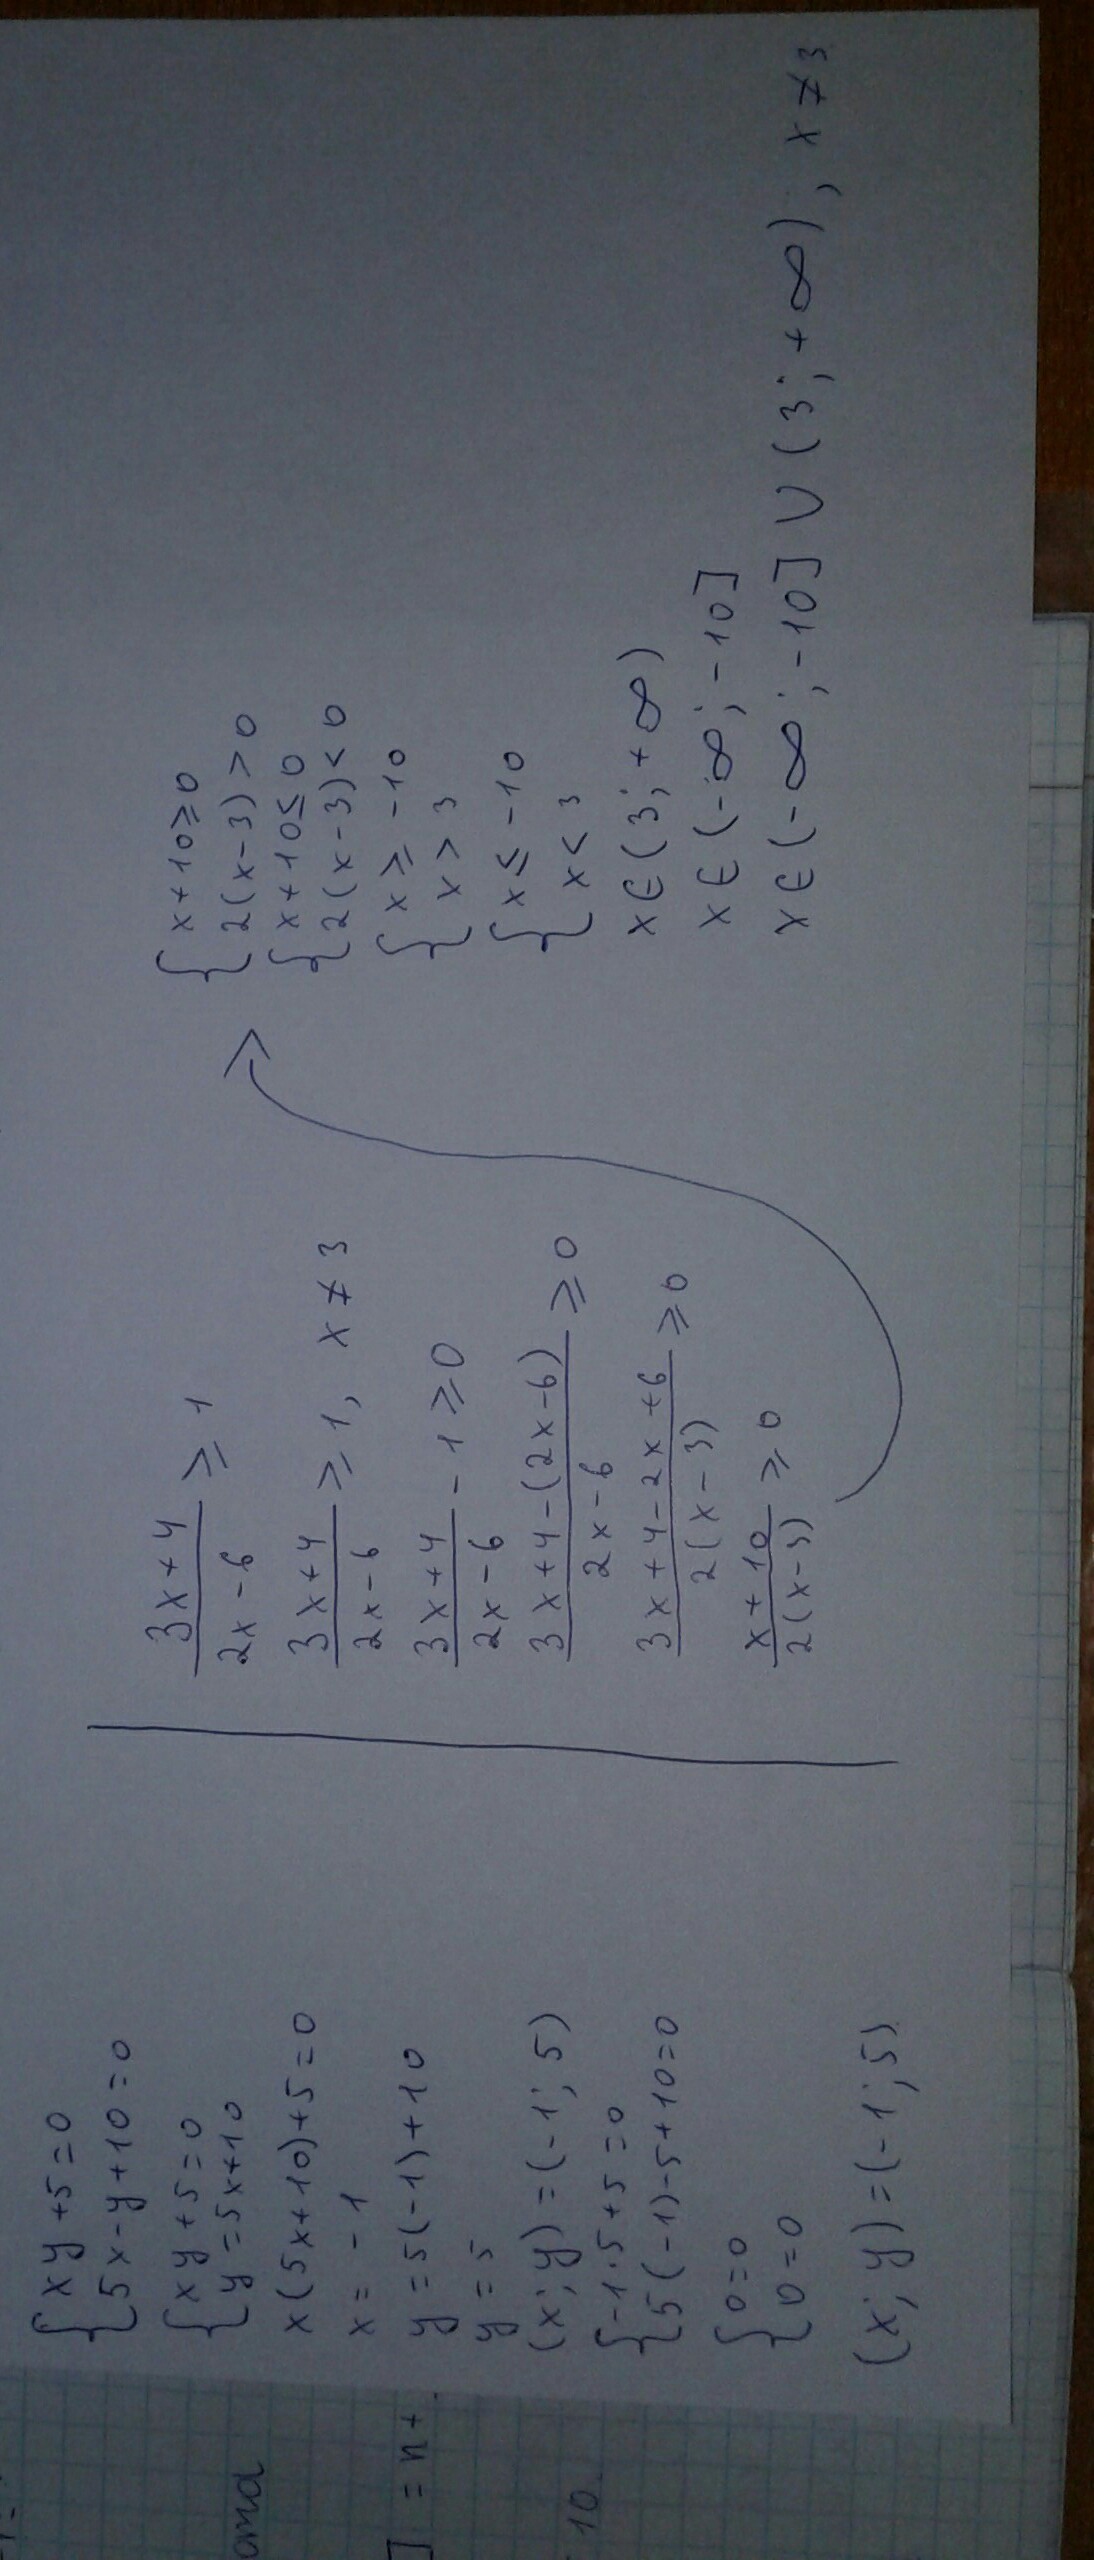 { xy + 5 = 0
5x - y + 10 = 0
{ xy + 5 = 0
y = 5x + 10
x(5x + 10) + 5 = 0
x = -1
y = 5(-1) + 10
y = 5
(x; y) = (-1; 5)
{ -1·5 + 5 = 0
5(-1) - 5 + 10 = 0
{ 0 = 0
0 = 0
(x; y) = (-1; 5)
3x + 4
2x - 6 ≥ 1
3x + 4
2x - 6 ≥ 1, x ≠ 3
3x + 4
2x - 6 - 1 ≥ 0
3x + 4 - (2x - 6)
2x - 6 ≥ 0
3x + 4 - 2x + 6
2(x - 3) ≥ 0
x + 10
2(x - 3) ≥ 0
{ x + 10 ≥ 0
2(x - 3) > 0
{ x + 10 ≤ 0
2(x - 3) < 0
{ x ≥ -10
x > 3
{ x ≤ -10
x < 3
x ∈ (3; +∞)
x ∈ (-∞; -10]
x ∈ (-∞; -10] ∪ (3; +∞), x ≠ 3
] = n +
10